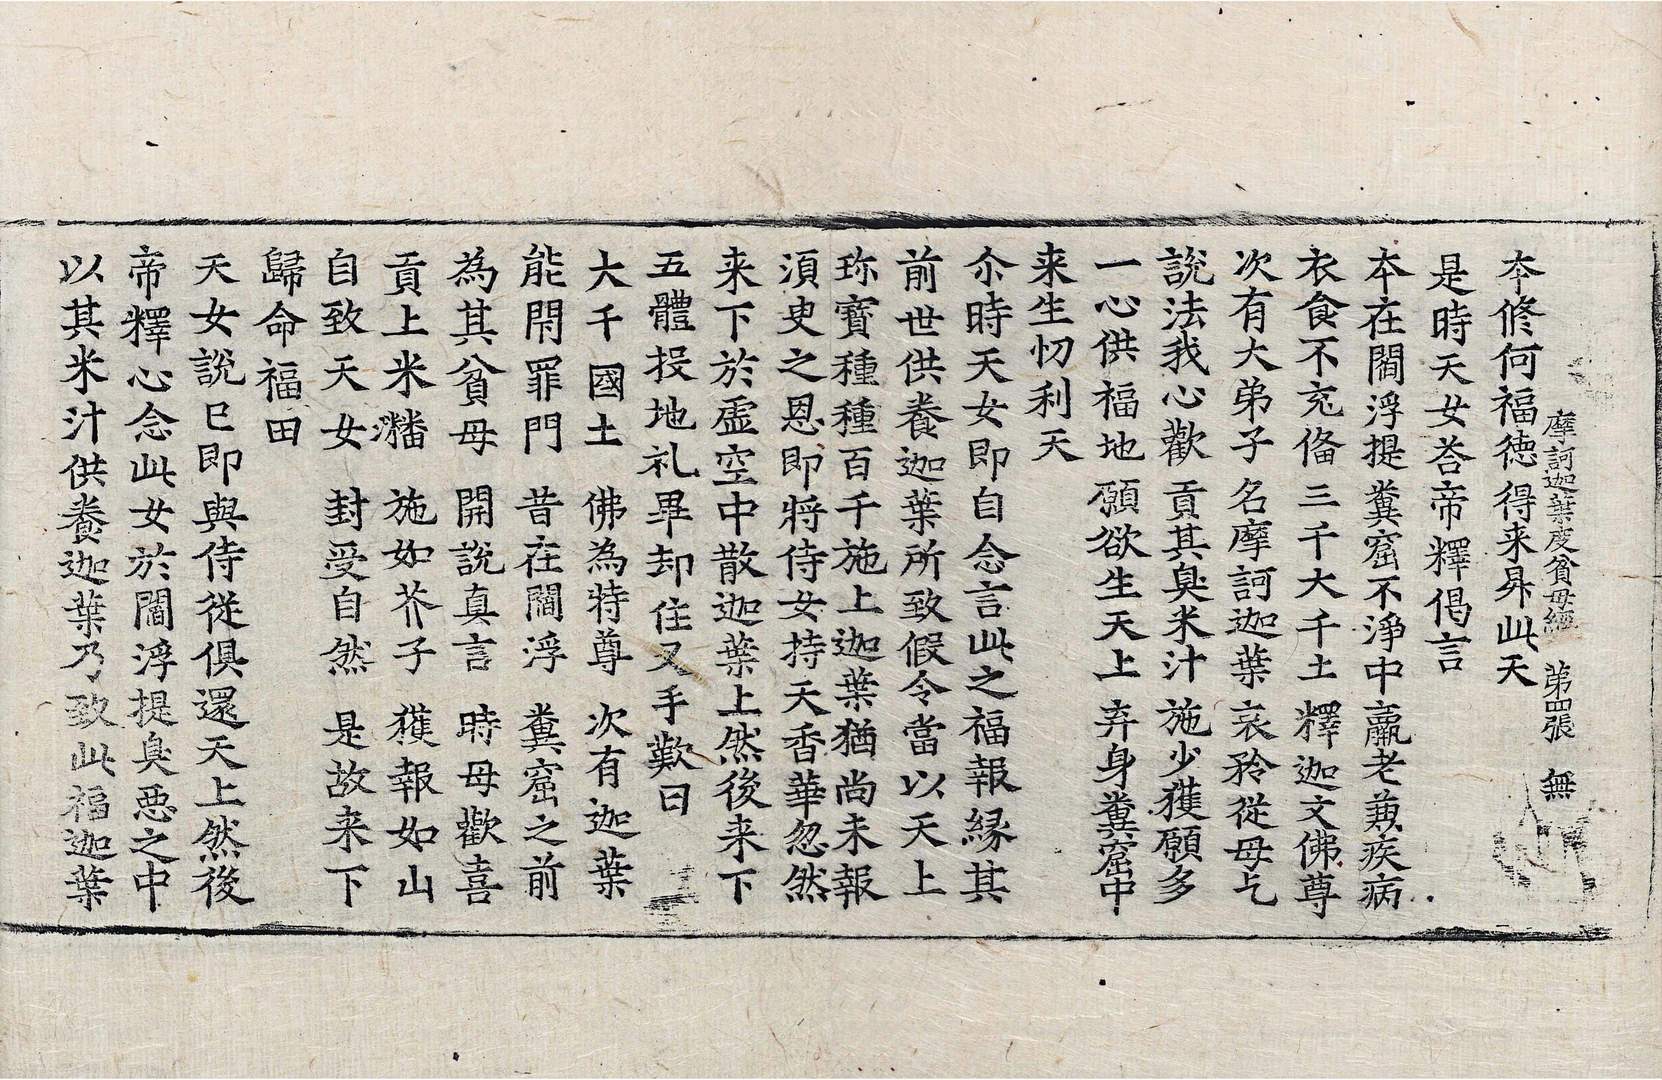 摩訶迦葉度貧母經　第四張　無
本修何福德　得来昇此天
是時天女荅帝釋偈言
本在閻浮提　糞窟不淨中　羸老兼疾病
衣食不充俻　三千大千土　釋迦文佛尊
次有大弟子　名摩訶迦葉　哀矜從母乞
說法我心歡　貢其臭米汁　施少獲願多
一心供福地　願欲生天上　弃身糞窟中
来生忉利天
尒時天女即自念言此之福報縁其
前世供養迦葉所致假令當以天上
珎寳種種百千施上迦葉猶尚未報
湏臾之恩即將侍女持天香華忽然
来下於虚空中散迦葉上然後来下
五體投地礼畢却住叉手歎曰
大千國土　佛為特尊　次有迦葉
能閇罪門　昔在閻浮　糞窟之前
為其貧母　開說真言　時母歡喜
貢上米潘　施如芥子　獲報如山
自致天女　封受自然　是故来下
歸命福田
天女說已即與侍從俱還天上然後
帝釋心念此女於閻浮提臭惡之中
以其米汁供養迦葉乃致此福迦葉